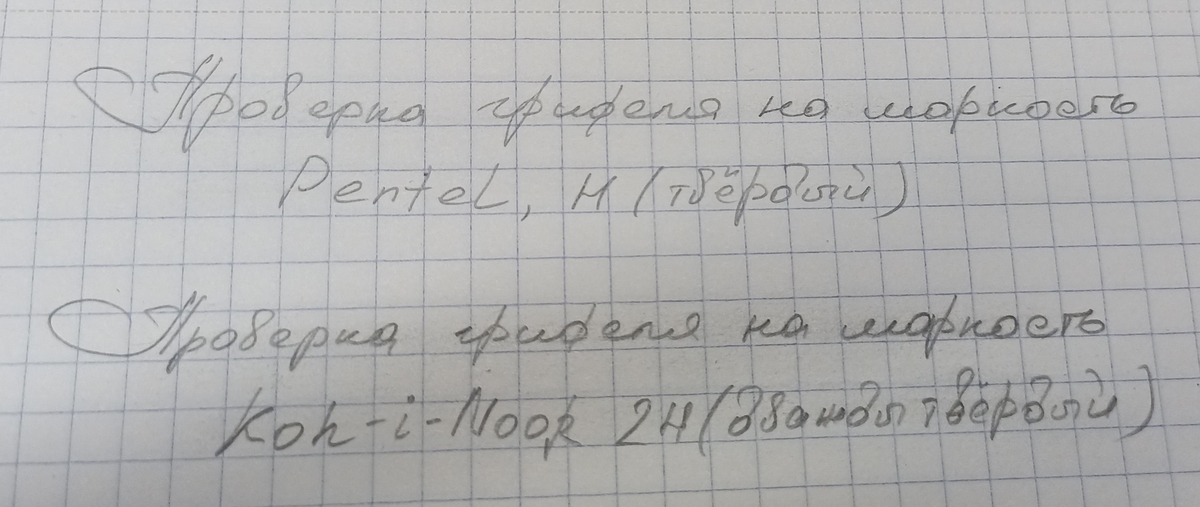 Проверка грифеля на маркость
Pentel, H (твёрдый)
Проверка грифеля на маркость
Koh-i-Noor 2H (дважды твёрдый)